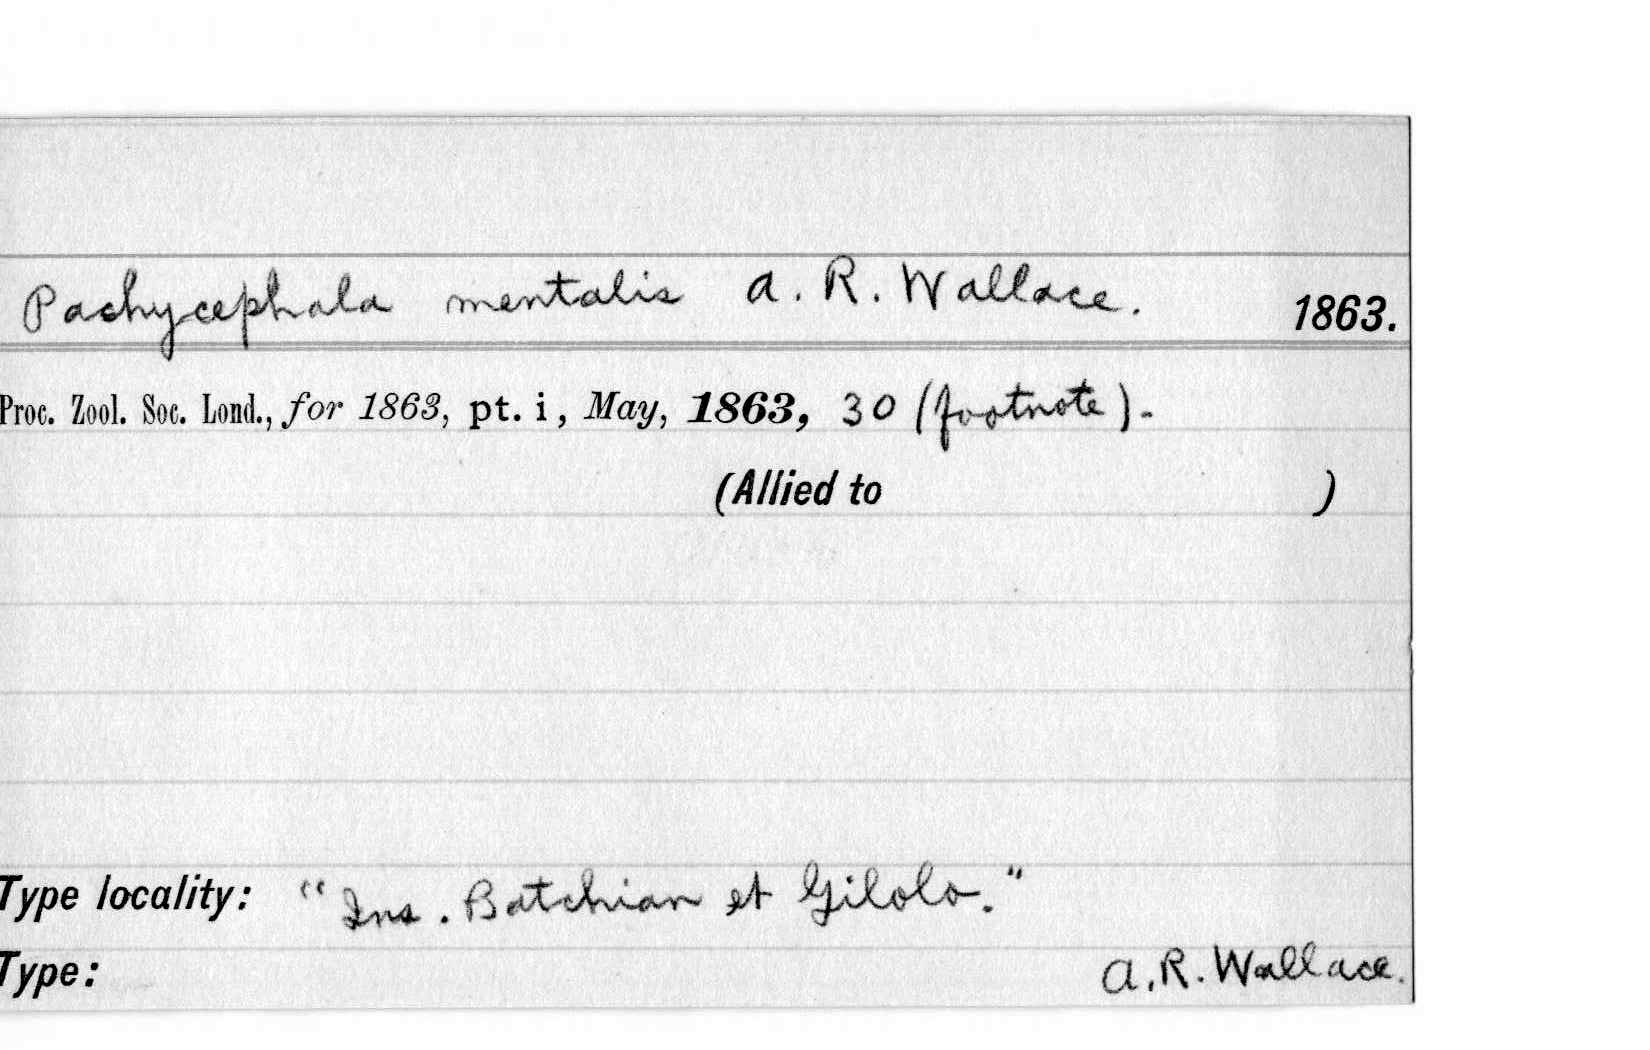 Pachycephala mentalis A. R. Wallace. 1863.
Proc. Zool. Soc. Lond., for 1863, pt. i, May, 1863, 30 (footnote).
(Allied to )
Type locality: "Ins. Batchian et Gilolo."
Type: A. R. Wallace.